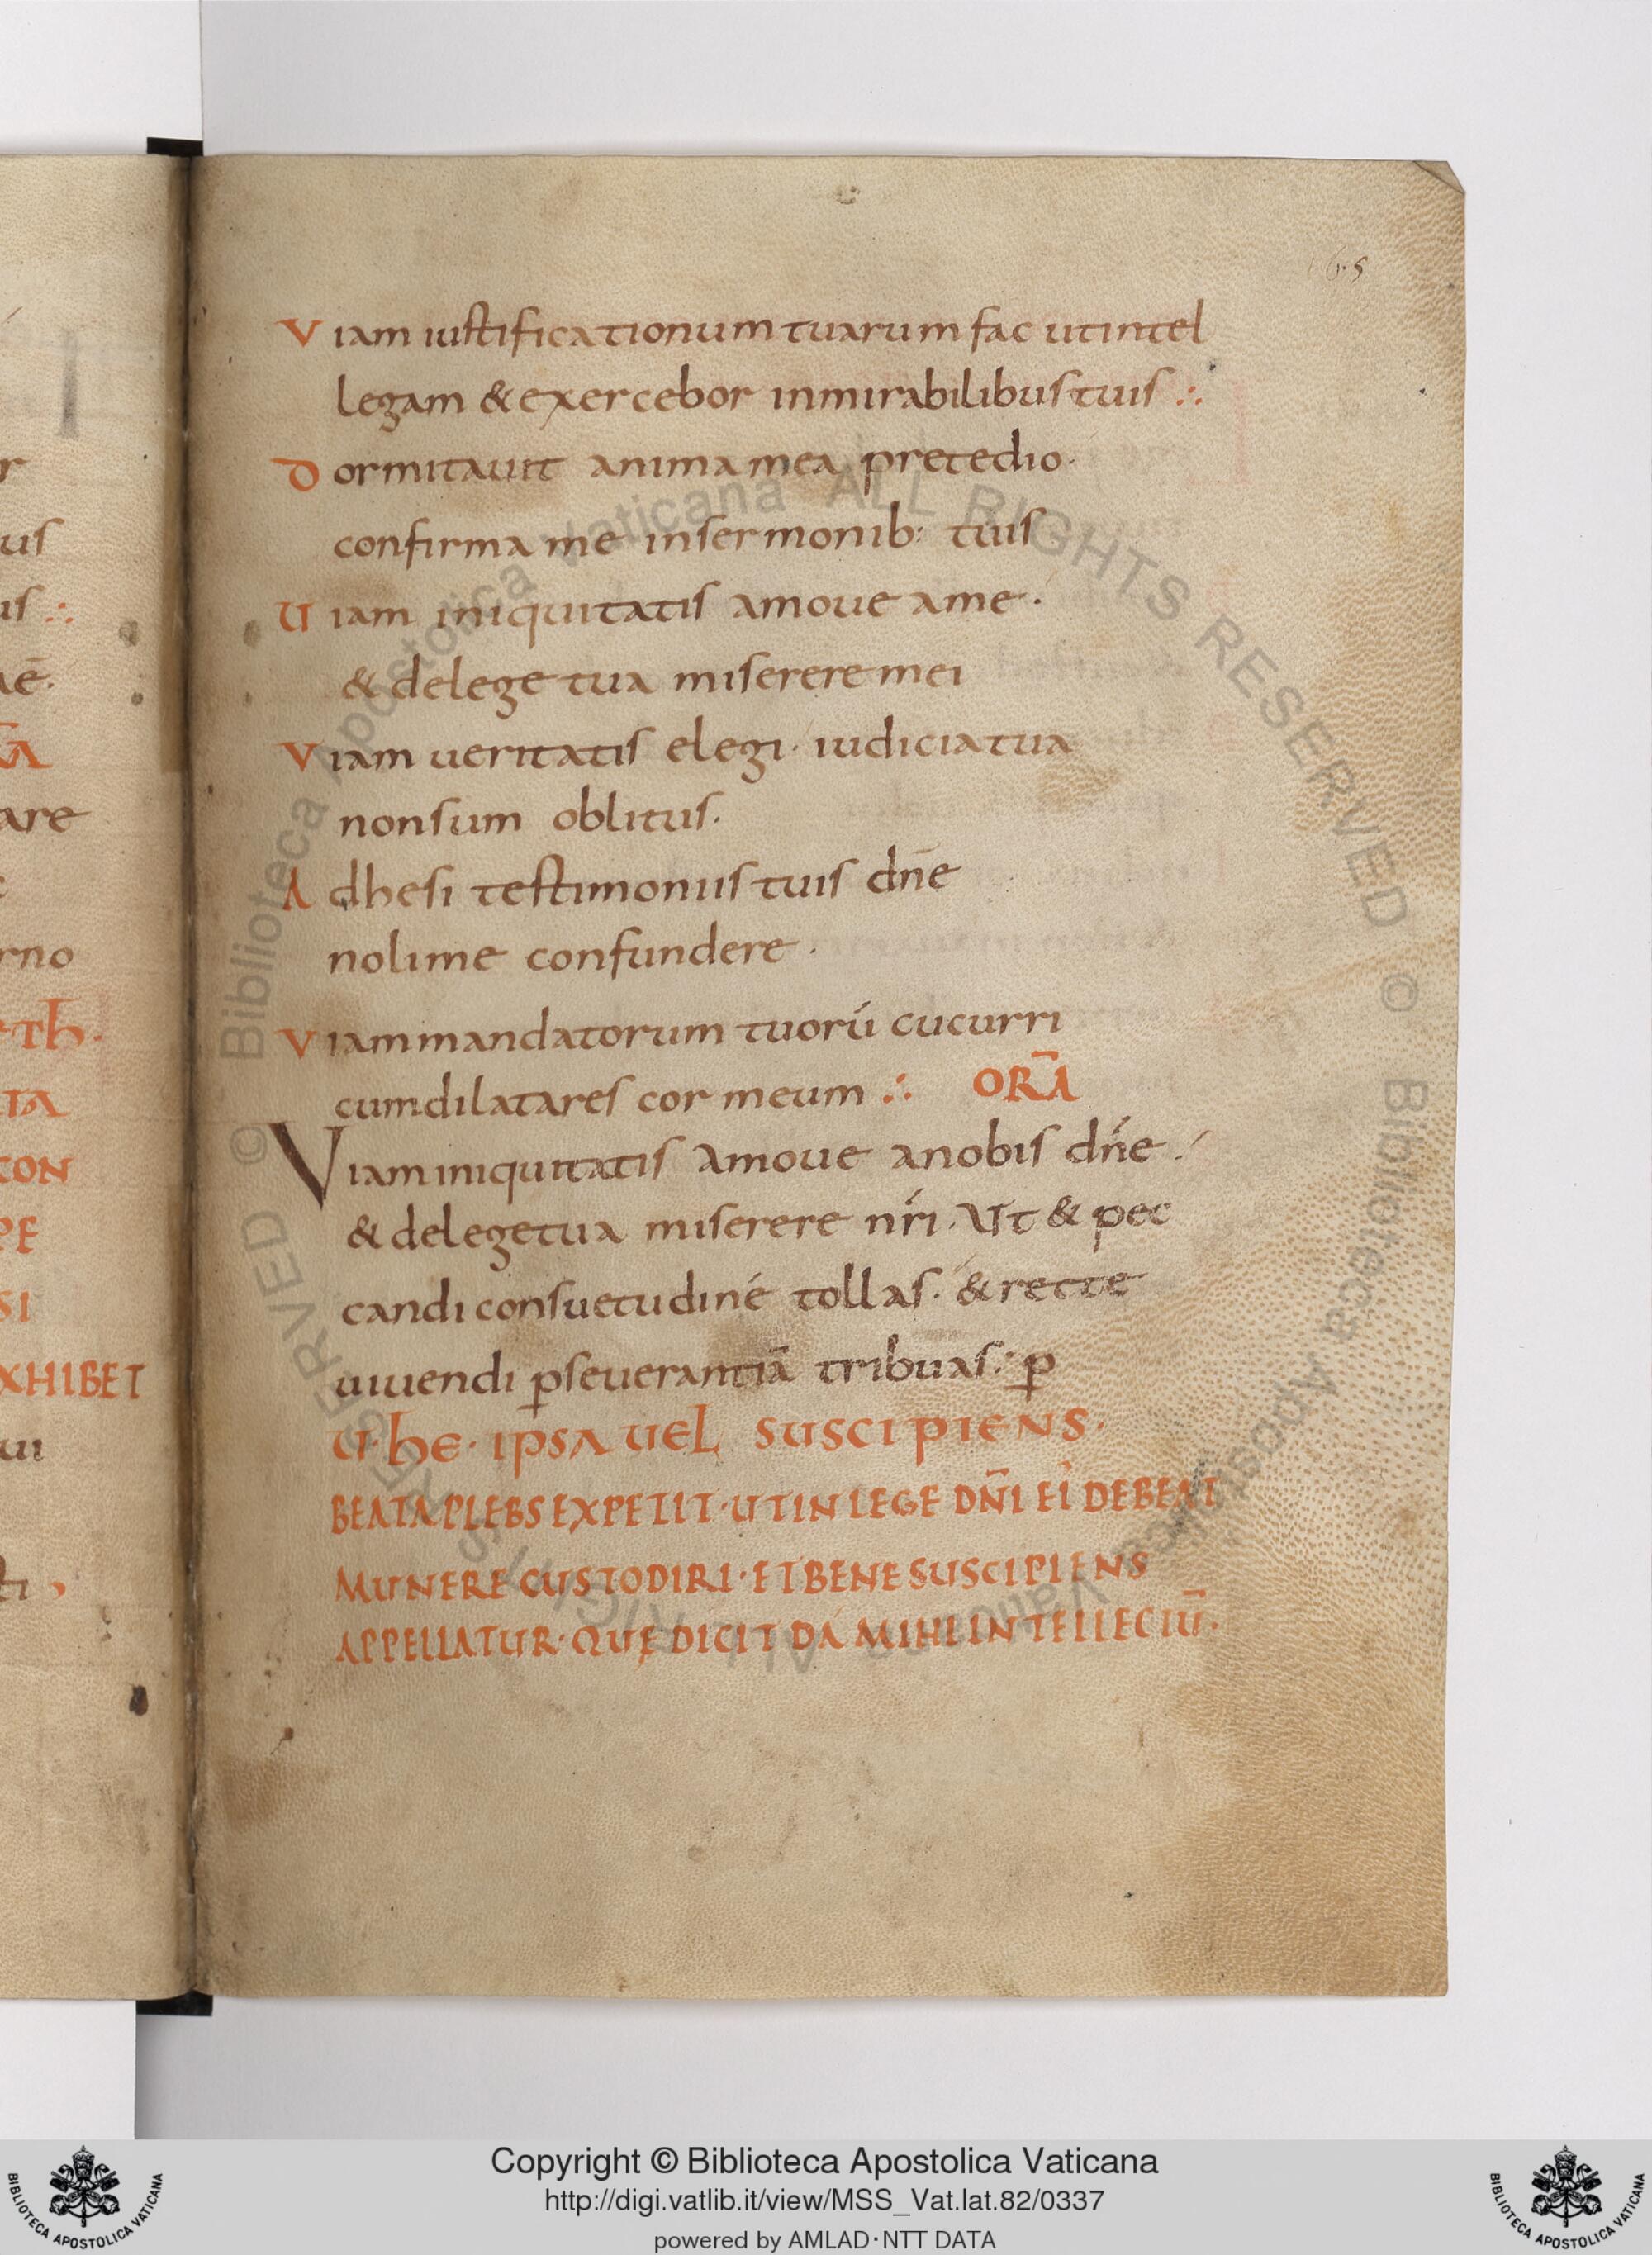 165
Viam iustificationum tuarum fac utintel
legam & exercebor inmirabilibus tuis ∴
Dormitauit anima mea pretedio·
confirma me insermonib: tuis
Uiam iniquitatis amoue ame·
& delege tua miserere mei
Viam ueritatis elegi· iudicia tua
nonsum oblitus·
Adhesi testimoniis tuis dn̄e
nolime confundere·
Viam mandatorum tuorū cucurri
cumdilatares cor meum ∴ ORĀ
Viam iniquitatis amoue anobis dn̄e·
& delegetua miserere nr̄i· Ut & pec
candi consuetudinē tollas· & recte
uiuendi ꝑseuerantiā tribuas: ꝑ
U·he· ipsa uel suscipiens·
BEATA PLEBS EXPETIT· UT IN LEGE DN̄I EI DEBEAT
MUNERE CUSTODIRI· ET BENE SUSCIPIENS
APPELLATUR· QUĘ DICIT DA MIHI INTELLECTŪ·
r
us
us ∴
aē·
R̄A
are
rno
TH·
TA
CON
PE
SI
XHIBET
ui
ti
© Biblioteca Apostolica Vaticana ALL RIGHTS RESERVED © Biblioteca Apostolica Vaticana ALL RIGHTS RESERVED
Copyright © Biblioteca Apostolica Vaticana
http://digi.vatlib.it/view/MSS_Vat.lat.82/0337
powered by AMLAD·NTT DATA
BIBLIOTECA APOSTOLICA VATICANA
BIBLIOTECA APOSTOLICA VATICANA